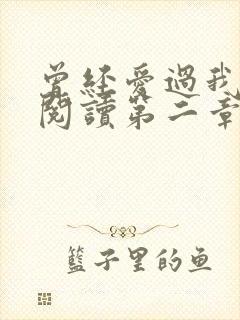 曾经愛過我
閱讀第二章
籃子里的鱼